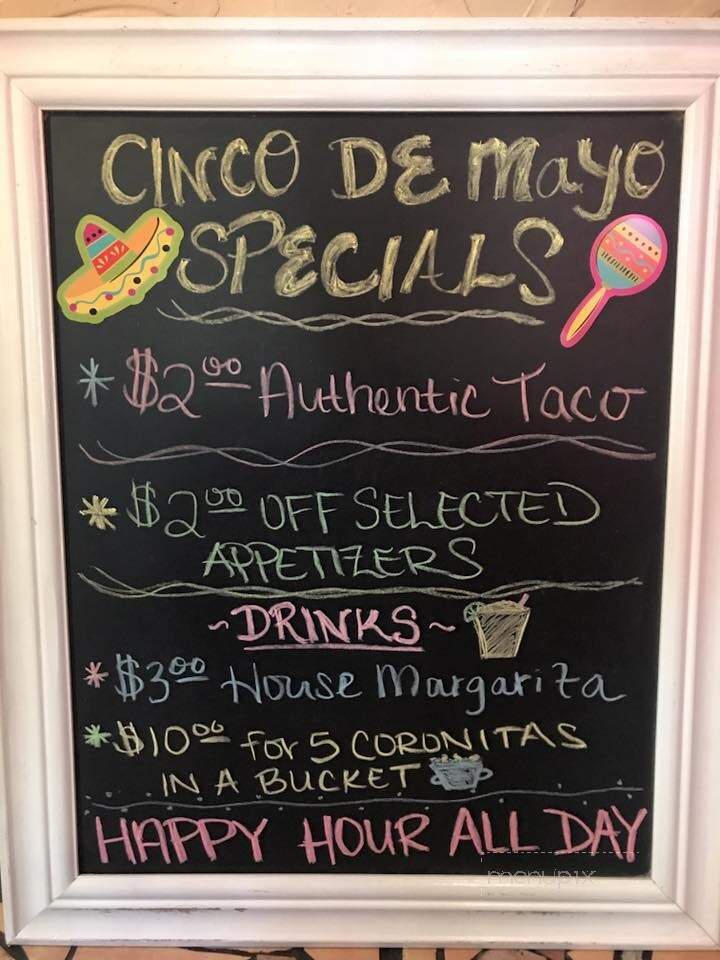 CINCO DE MAYO
SPECIALS
* $2.00 Authentic Taco
* $2.00 OFF SELECTED
APPETIZERS
~DRINKS~
* $3.00 House Margarita
* $10.00 for 5 CORONITAS
IN A BUCKET
HAPPY HOUR ALL DAY
menupix